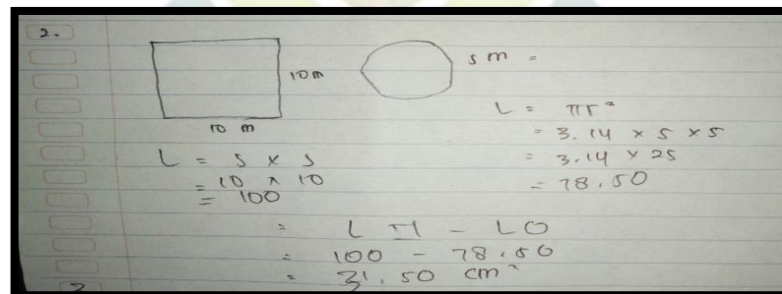 2.
10 m
10 m
L = s × s
= 10 × 10
= 100
5 m =
L = πr²
= 3.14 × 5 × 5
= 3.14 × 25
= 78.50
= L □ - L O
= 100 - 78.50
= 31.50 cm²